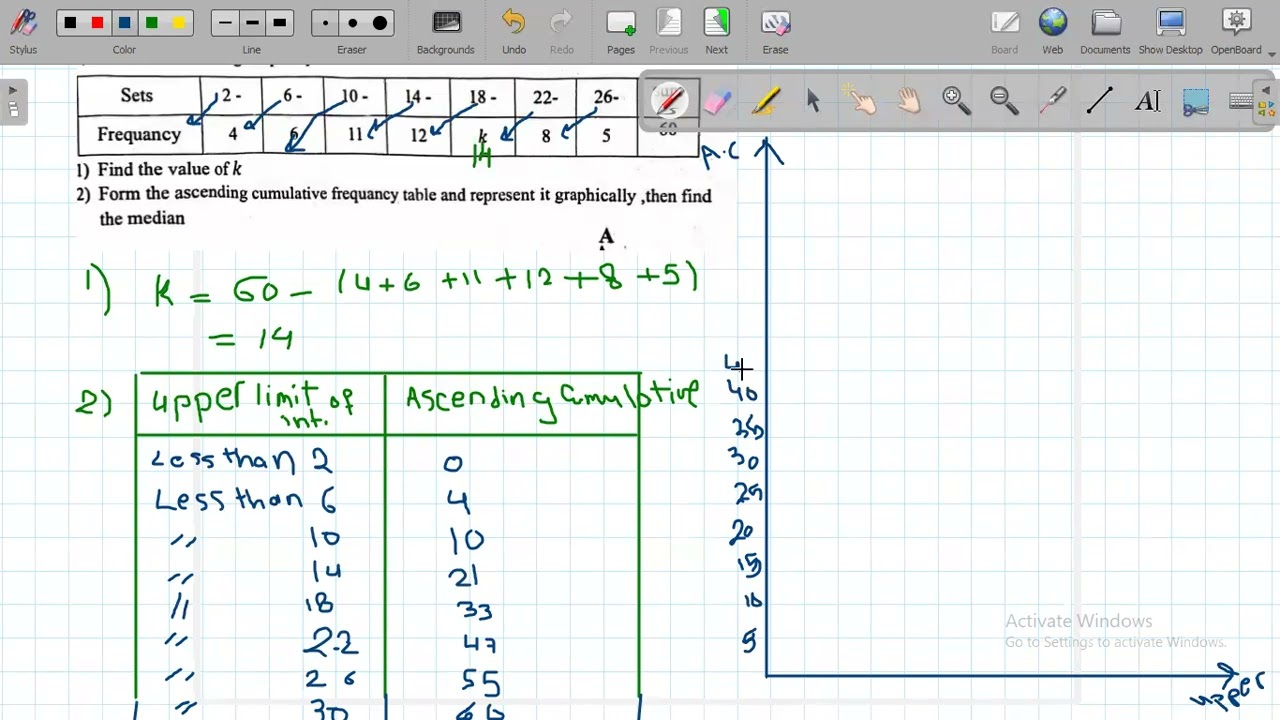 Stylus Color Line Eraser Backgrounds Undo Redo Pages Previous Next Erase Board Web Documents Show Desktop OpenBoard
Sets 2 - 6 - 10 - 14 - 18 - 22- 26-
Frequancy 4 6 11 12 k 8 5 60
14
A.C
1) Find the value of k
2) Form the ascending cumulative frequancy table and represent it graphically ,then find
the median
A
1) K = 60 - (4+6 +11 +12 +8 +5)
= 14
2) upper limit of int. Ascending Cumulative
Less than 2 0
Less than 6 4
〃 10 10
〃 14 21
〃 18 33
〃 22 47
〃 26 55
〃 30 60
4
40
35
30
25
20
15
10
5
upper
Activate Windows
Go to Settings to activate Windows.